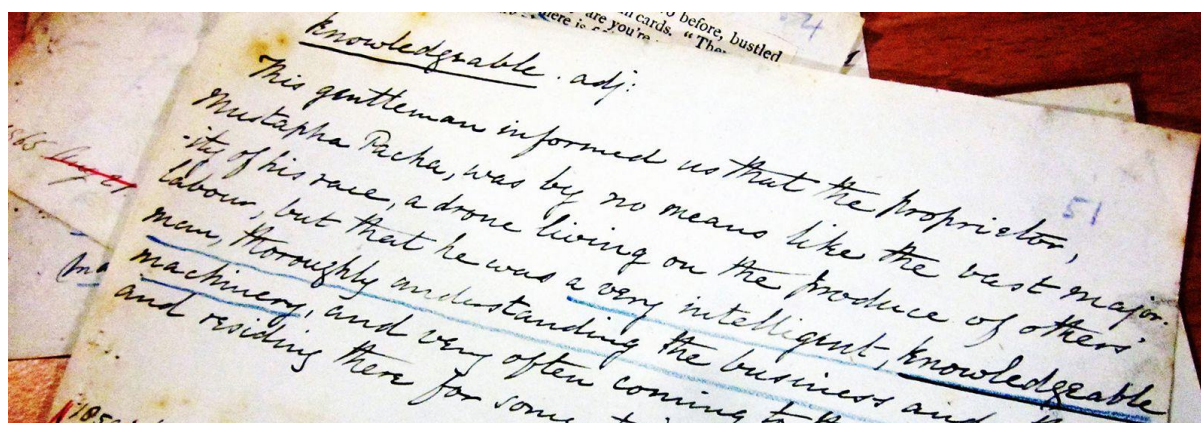 before, bustled
cards. "The
are you're
there is
54
knowledgeable. adj:
This gentleman informed us that the proprietor,
Mustapha Pacha, was by no means like the vast major-
-ity of his race, a drone living on the produce of others'
labour, but that he was a very intelligent, knowledgeable
man, thoroughly understanding the business and the
machinery, and very often coming to the
and residing there for some
51
1865 Aug 21